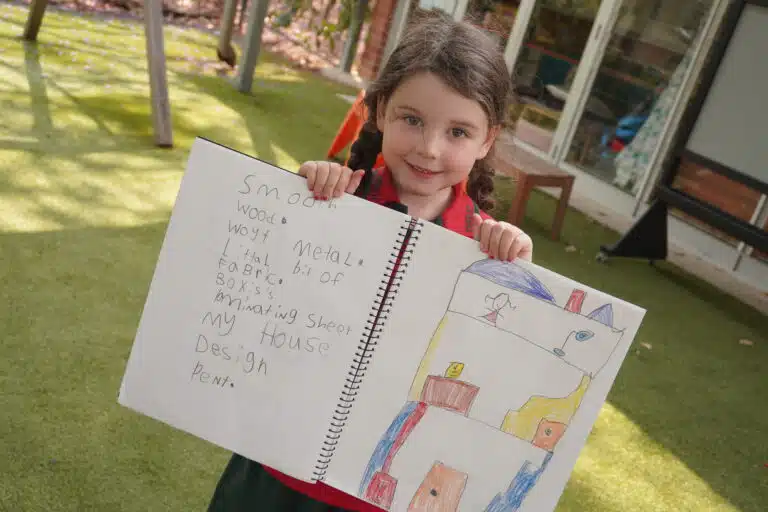 Smooth
Wood.
Woyt Metal.
Littal bit of
FaBric.
BOXis's
aminating Sheat
My House
Design
Pent.